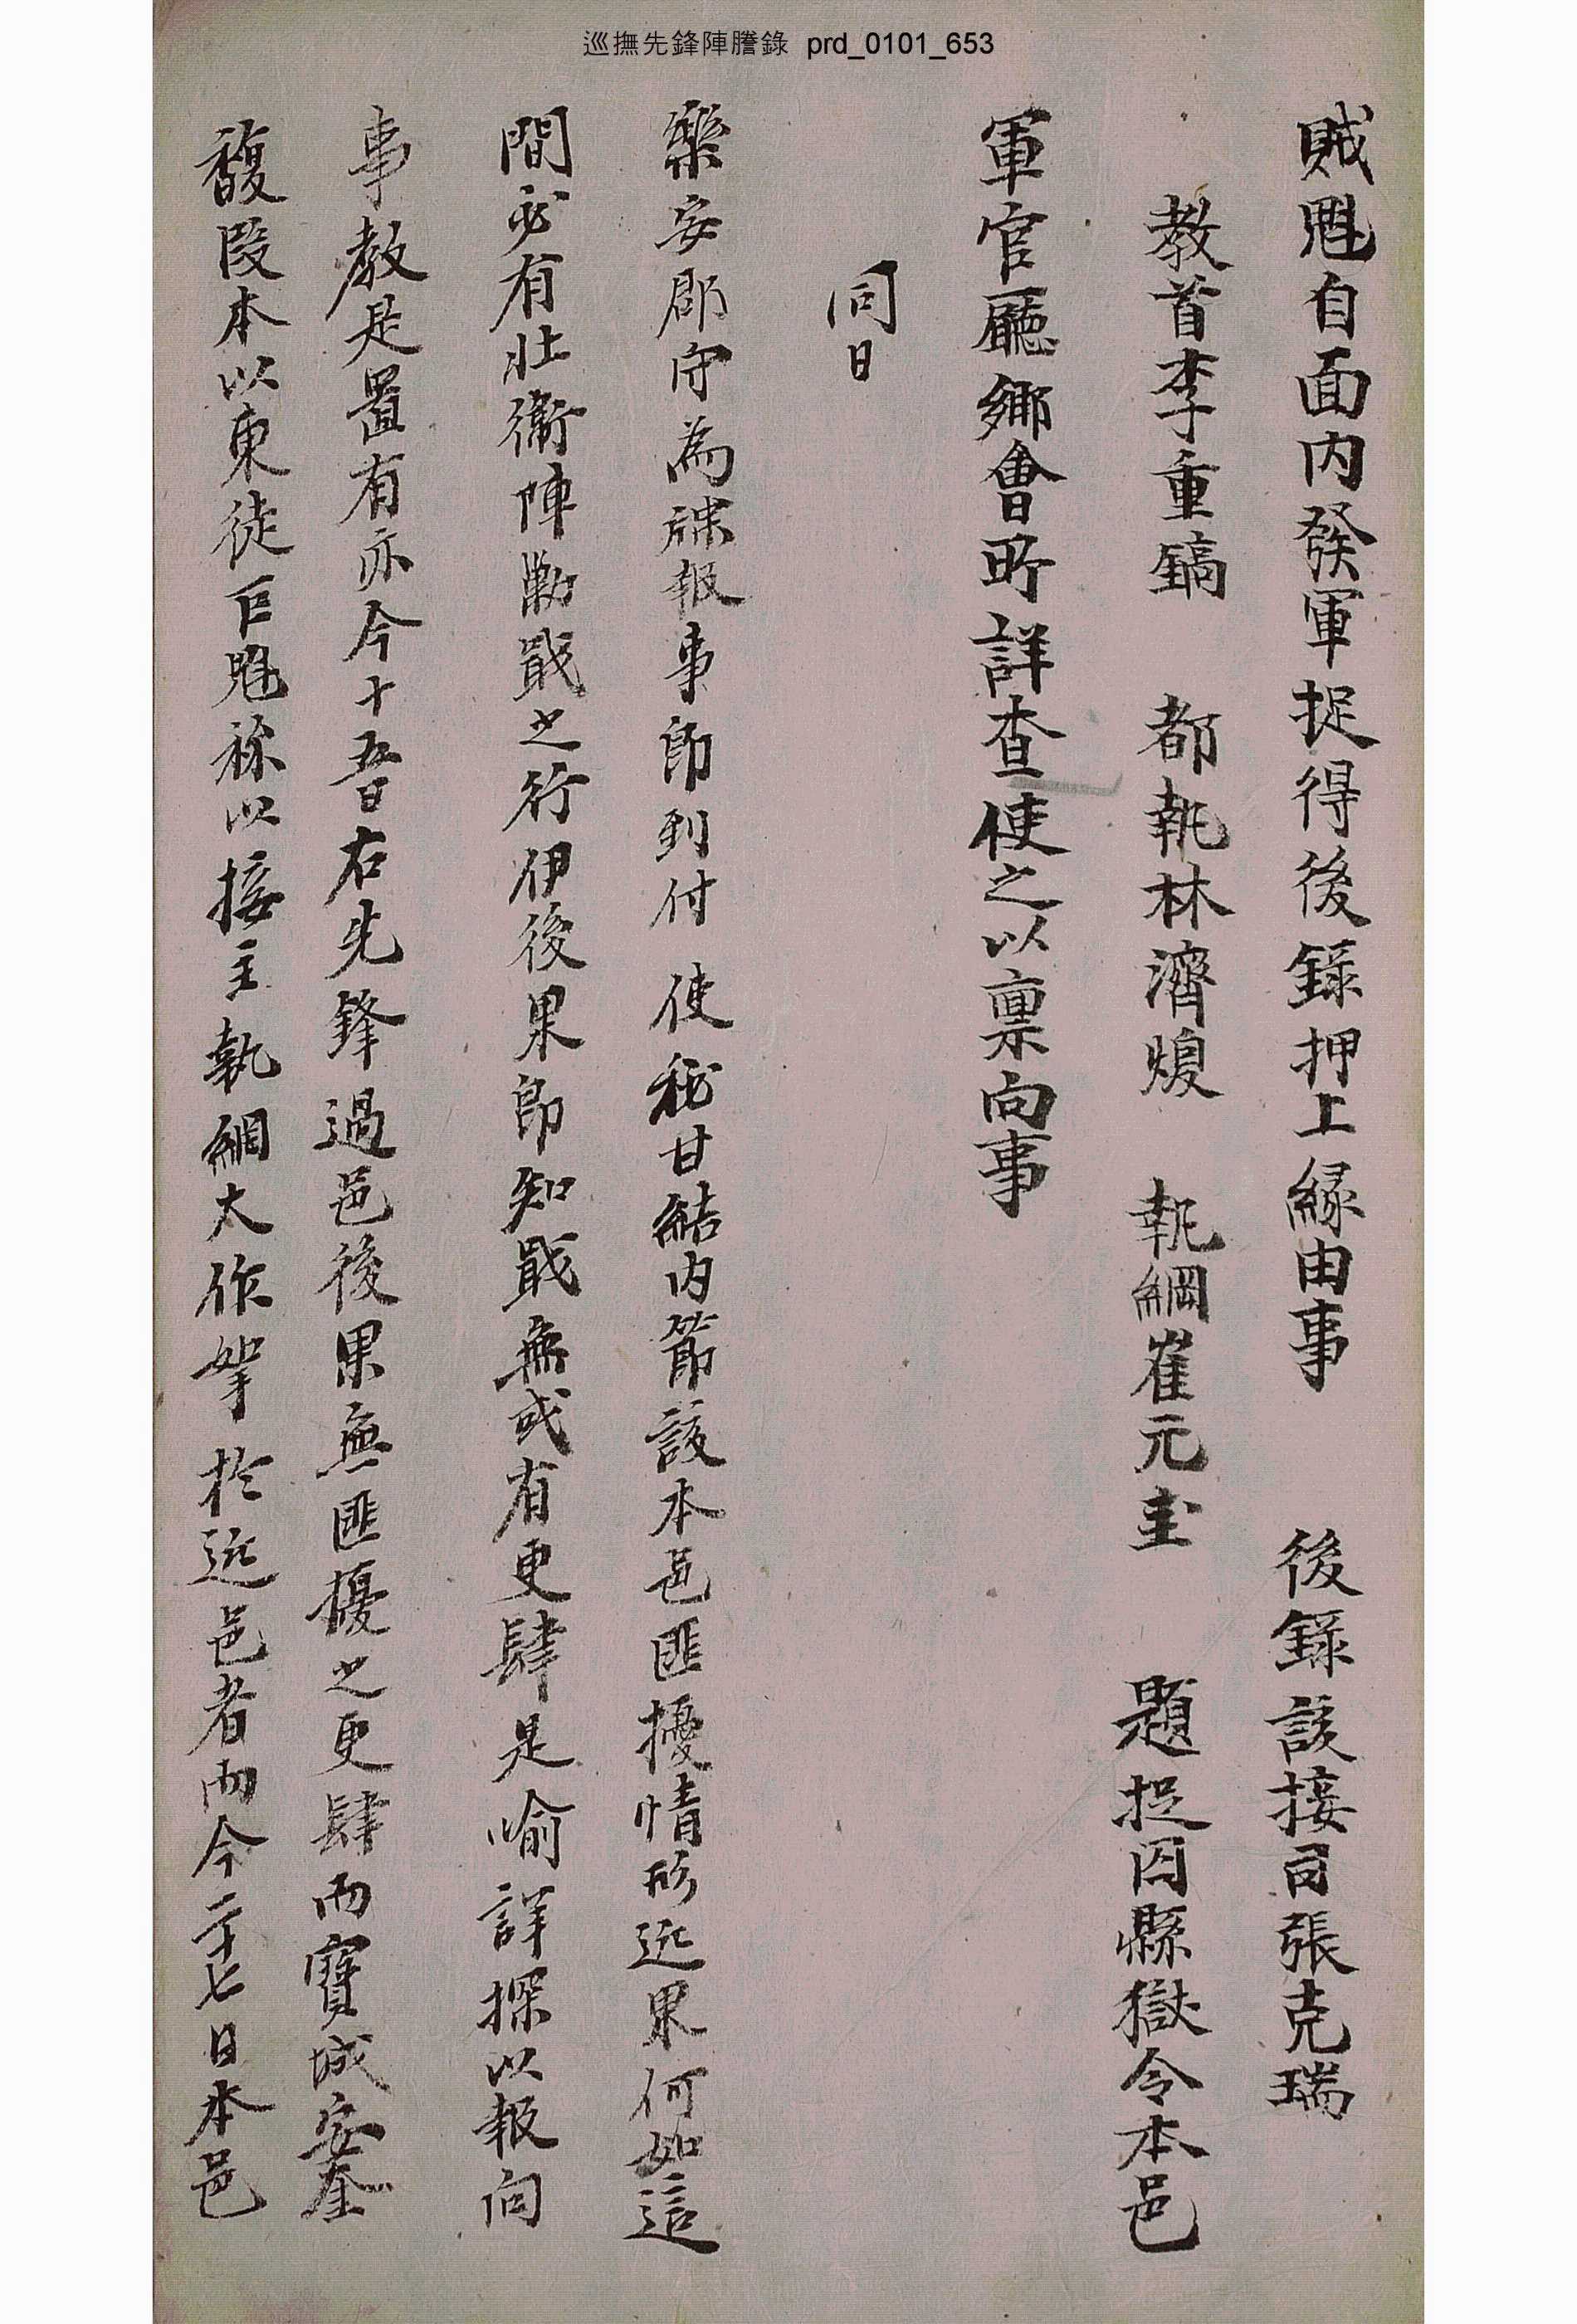 巡撫先鋒陣謄錄 prd_0101_653
賊魁自面内發軍捉得後錄押上緣由事 後錄該接司張克瑞
教首李重鎬 都執林濟煥 執綱崔元圭 題捉囚縣獄令本邑
軍官廳鄕會所詳查使之以稟向事
同日
樂安郡守為牒報事卽到付 使秘甘結內節該本邑匪擾情形近果何如這
間必有壯衛陣勦戢之行伊後果卽知戢無或有更肆是喩詳探以報向
事敎是置有亦今十五日右先鋒過邑後果無匪擾之更肆而寶城安奎
馥段本以東徒巨魁稱以接主執綱大作拏於近邑者而今二十七日本邑